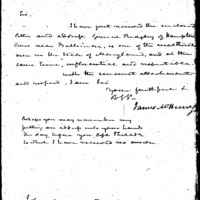 Sir.
I have just received the enclosed
letter and address. General Ridgely of Hampton
near Baltimore, is one of the wealthiest
men in the State of Maryland, and at the
same time, influential and respectable.
with the sincerest attachment
and respect, I am Sir
your faithful &
James McHenry
Perhaps you may remember my
putting an address into your hands
the day before you left
to which I have received no answer